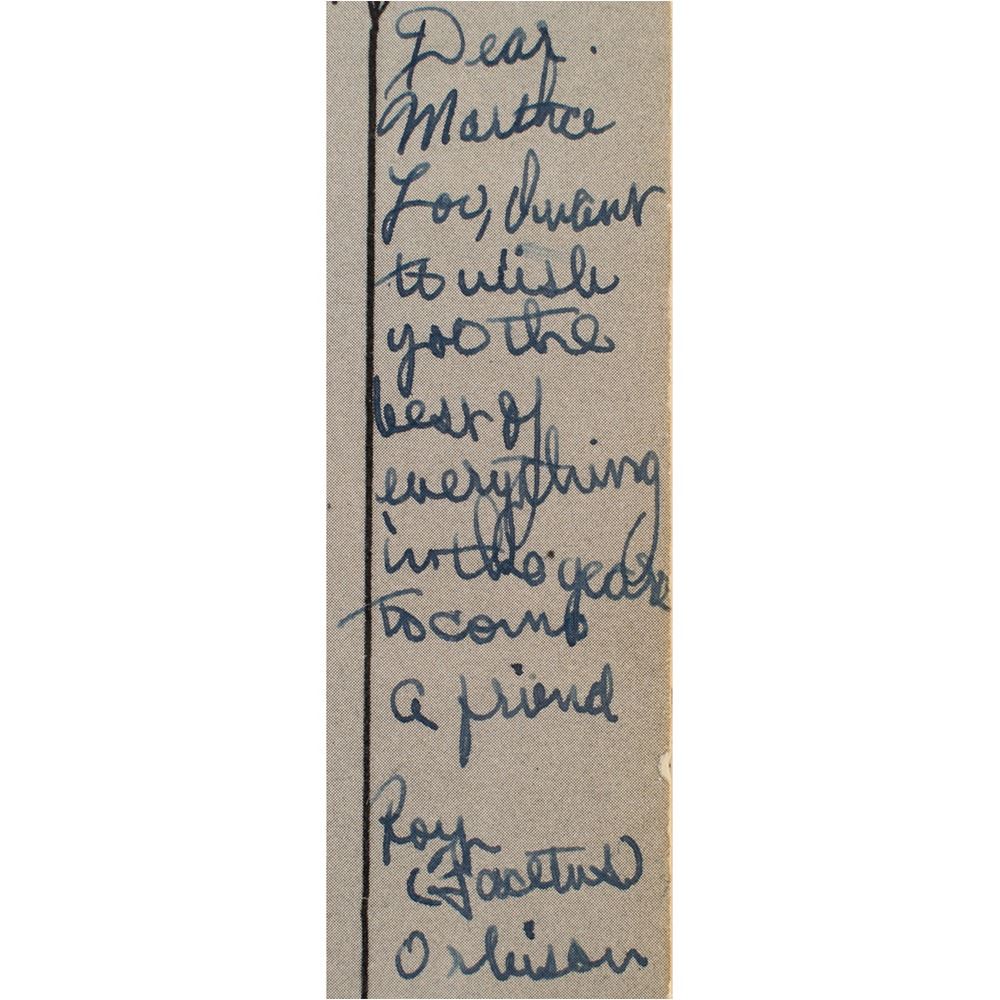 Dear
Martha
Lou, I want
to wish
you the
best of
everything
in the years
to come
a friend
Roy
(Facetus)
Orbison